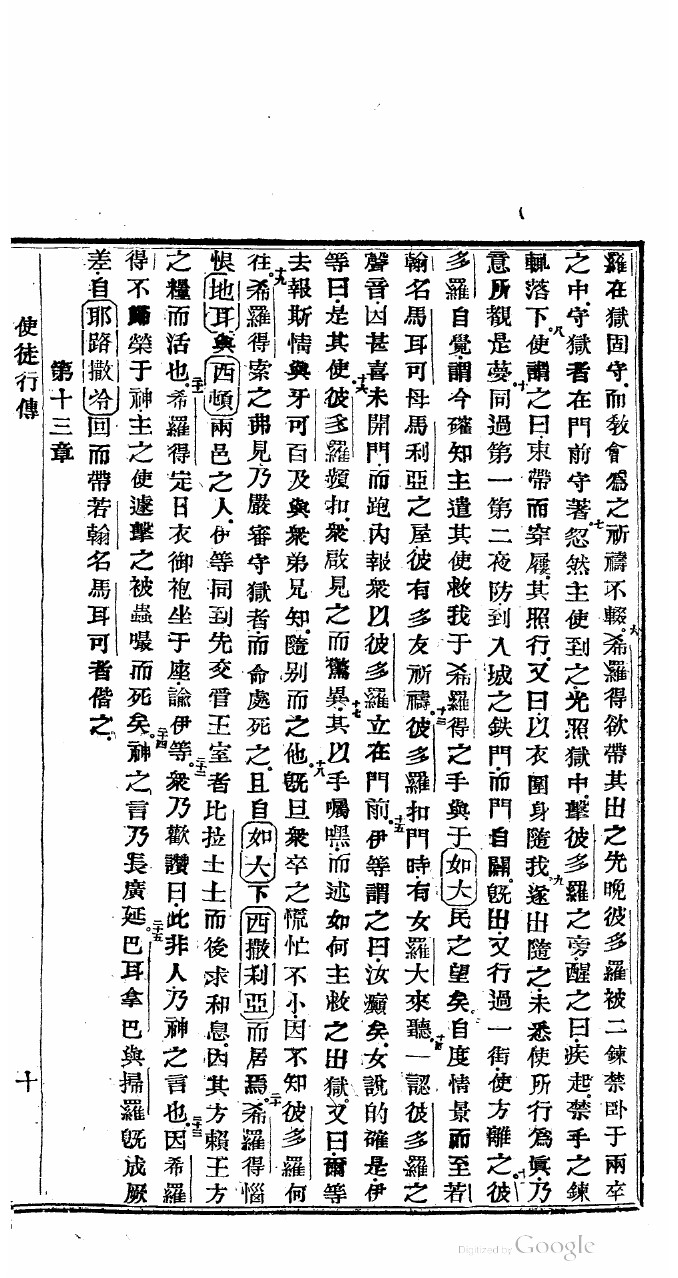 羅在獄固守.而敎會爲之祈禱不輟。六希羅得欲帶其出之先晚彼多羅被二鍊禁卧于兩卒
之中.守獄者在門前守著.七忽然主使到之.光照獄中.擊彼多羅之旁.醒之曰.疾起.禁手之鍊
輒落下.八使謂之曰.束帶而穿履.其照行.又曰.以衣圍身隨我.九遂出隨之.未悉使所行爲眞.乃
意所覩是夢.十同過第一第二夜防.到入城之鉄門.而門自開.旣出.又行過一街.使方離之.十一彼
多羅自覺.謂今確知主遣其使救我于希羅得之手.與于如大民之望矣。十二自度情景而至若
翰名馬耳可母馬利亞之屋.彼有多友祈禱。十三彼多羅扣門時.有女羅大來聽。十四一認彼多羅之
聲音.因甚喜未開門.而跑內報衆以彼多羅立在門前。十五伊等謂之曰.汝癲矣.女說的確是.伊
等曰.是其使.十六彼多羅頻扣.衆啟見之而驚異.十七其以手囑嘿.而述如何主救之出獄.又曰.爾等
去報斯情與牙可百及與衆弟兄知.隨別而之他。十八旣旦衆卒之慌忙不小.因不知彼多羅何
往。十九希羅得索之弗見.乃嚴審守獄者.而命處死之.且自如大下西撒利亞而居焉。二十希羅得惱
恨地耳與西頓兩邑之人.伊等同到先交管王室者比拉士土.而後求和息.因其方賴王方
之糧而活也。二十一希羅得定日衣御袍坐于座.諭伊等。二十二衆乃歡讚曰.此非人.乃神之言也。二十三因希羅
得不歸榮于神.主之使遽擊之.被蟲嘬而死矣。二十四神之言乃長廣延。二十五巴耳拿巴與掃羅旣成厥
差.自耶路撒冷回.而帶若翰名馬耳可者偕之.
第十三章
使徒行傳
十
Digitized by Google